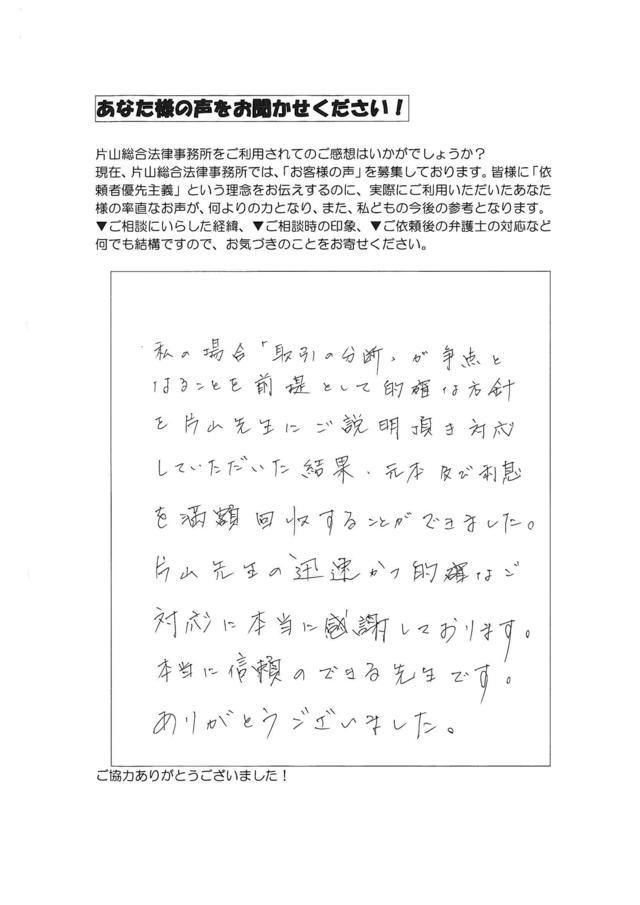 あなた様の声をお聞かせください！
片山総合法律事務所をご利用されてのご感想はいかがでしょうか？
現在、片山総合法律事務所では、「お客様の声」を募集しております。皆様に「依
頼者優先主義」という理念をお伝えするのに、実際にご利用いただいたあなた
様の率直なお声が、何よりの力となり、また、私どもの今後の参考となります。
▼ご相談にいらした経緯、▼ご相談時の印象、▼ご依頼後の弁護士の対応など
何でも結構ですので、お気づきのことをお寄せください。
私の場合「取引の分断」が争点と
なることを前提として的確な方針
を片山先生にご説明頂き対応
していただいた結果、元本及び利息
を満額回収することができました。
片山先生の迅速かつ的確なご
対応に本当に感謝しております。
本当に信頼のできる先生です。
ありがとうございました。
ご協力ありがとうございました！